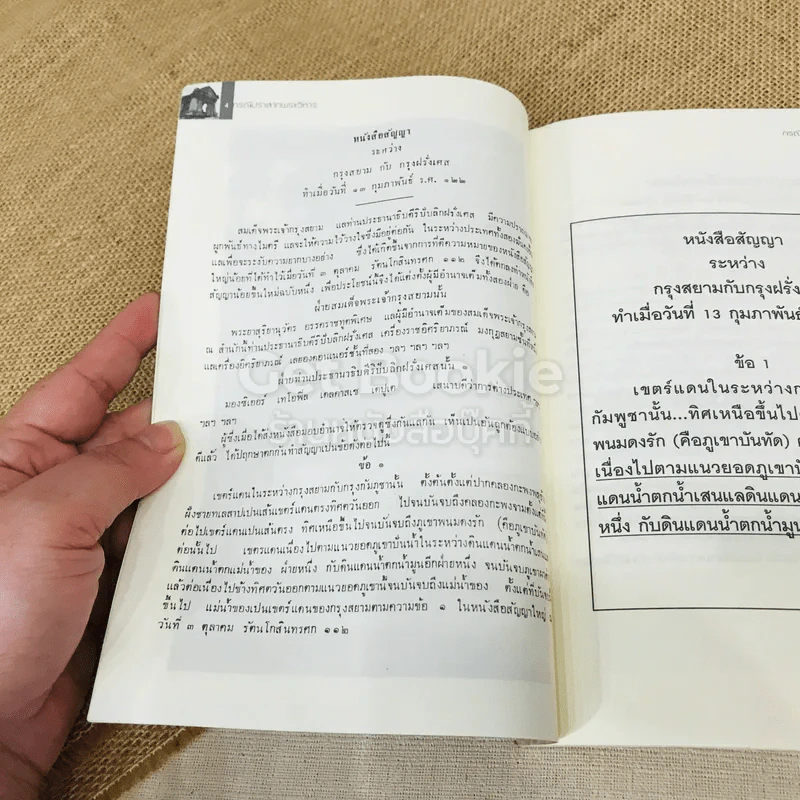 4 กรณีปราสาทพระวิหาร
หนังสือสัญญา
ระหว่าง
กรุงสยาม กับ กรุงฝรั่งเศส
ทำเมื่อวันที่ ๑๓ กุมภาพันธ์ ร.ศ. ๑๒๒
สมเด็จพระเจ้ากรุงสยาม แลท่านประธานาธิบดีรีปับลิกฝรั่งเศส มีความปรารถนา
ผูกพันธ์ทางไมตรี แลจะให้ความไว้วางใจซึ่งมีอยู่ต่อกัน ในระหว่างประเทศทั้งสองมั่นคง
แลเพื่อจะระงับความยากบางอย่าง ซึ่งได้เกิดขึ้นจากการที่ตีความหมายของหนังสือสัญญา
ใหญ่น้อยที่ได้ทำไว้เมื่อวันที่ ๓ ตุลาคม รัตนโกสินทรศก ๑๑๒ จึงได้ตกลงทำหนังสือ
สัญญาน้อยขึ้นใหม่ฉบับหนึ่ง เพื่อประโยชน์นี้จึงได้แต่งตั้งผู้มีอำนาจเต็มทั้งสองฝ่าย คือ
ฝ่ายสมเด็จพระเจ้ากรุงสยามนั้น
พระยาสุริยานุวัตร อรรคราชทูตพิเศษ แลผู้มีอำนาจเต็มของสมเด็จพระเจ้ากรุงสยาม
ณ สำนักนิ์ท่านประธานาธิบดีรีปับลิกฝรั่งเศส เครื่องราชอิศริยาภรณ์ มงกุฎสยามชั้นที่หนึ่ง
แลเครื่องอิศริยาภรณ์ เลยองดอนเนอร์ชั้นที่สอง ฯลฯ ฯลฯ ฯลฯ
ฝ่ายท่านประธานาธิบดีรีปับลิกฝรั่งเศสนั้น
มองซิเออร์ เทโอฟิล เดลกาสเซ เดปูเต เสนาบดีว่าการต่างประเทศ ฯลฯ
ฯลฯ ฯลฯ
ผู้ซึ่งเมื่อได้ส่งหนังสือมอบอำนาจให้ตรวจดูซึ่งกันแลกัน เห็นเป็นอันถูกต้องแบบอย่าง
ดีแล้ว ได้ปฤกษาตกลงกันทำสัญญาเป็นข้อดังต่อไปนี้
ข้อ ๑
เขตร์แดนในระหว่างกรุงสยามกับกรุงกัมภูชานั้น ตั้งต้นตั้งแต่ปากคลองสดุงโรลูออส
ฝั่งซ้ายทเลสาปเป็นเส้นเขตร์แดนตรงทิศตวันออก ไปจนบันจบถึงคลองกะพงจามตั้งแต่ที่นี้
ต่อไปเขตร์แดนเป็นเส้นตรง ทิศเหนือขึ้นไปจนบันจบถึงภูเขาพนมดงรัก (คือภูเขาบันทัด)
ต่อนั้นไป เขตรแดนเนื่องไปตามแนวยอดภูเขาปันน้ำในระหว่างดินแดนน้ำตกน้ำแสน
ดินแดนน้ำตกแม่น้ำของ ฝ่ายหนึ่ง กับดินแดนน้ำตกน้ำมูนอีกฝ่ายหนึ่ง จนบันจบถึงภูเขาผาด่าง
แล้วต่อเนื่องไปข้างทิศตวันออกตามแนวยอดภูเขานี้จนบันจบถึงแม่น้ำของ ตั้งแต่ที่บันจบ
ขึ้นไป แม่น้ำของเป็นเขตร์แดนของกรุงสยามตามความข้อ ๑ ในหนังสือสัญญาใหญ่
วันที่ ๓ ตุลาคม รัตนโกสินทรศก ๑๑๒
หนังสือสัญญา
ระหว่าง
กรุงสยามกับกรุงฝรั่ง
ทำเมื่อวันที่ 13 กุมภาพันธ์
ข้อ 1
เขตร์แดนในระหว่างก
กัมพูชานั้น...ทิศเหนือขึ้นไป
พนมดงรัก (คือภูเขาบันทัด)
เนื่องไปตามแนวยอดภูเขาปั
แดนน้ำตกน้ำเสนแลดินแดน
หนึ่ง กับดินแดนน้ำตกน้ำมูน
Get Bookie
ร้านหนังสือบุ๊คกี้